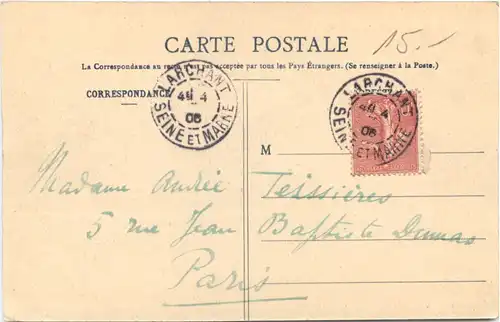 15.-
CARTE POSTALE
La Correspondance au recto n'est pas acceptée par tous les Pays Étrangers. (Se renseigner à la Poste.)
CORRESPONDANCE
LARCHANT
4
06
SEINE ET MARNE
LARCHANT
4
06
SEINE ET MARNE
M
Madame André Teissières
5 rue Jean Baptiste Dumas
Paris